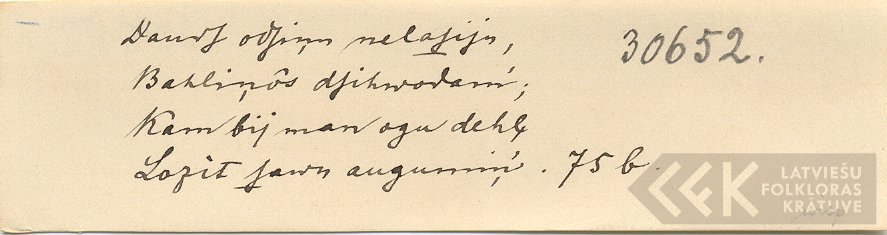 Daudſ odſiņu nelaſiju, 30652.
Bahliņôs dſihwodam';
Kam bij man ogu dehļ
Lozît ſawu augumiņ'. 75 b.
LATVIEŠU
FOLKLORAS
KRĀTUVE